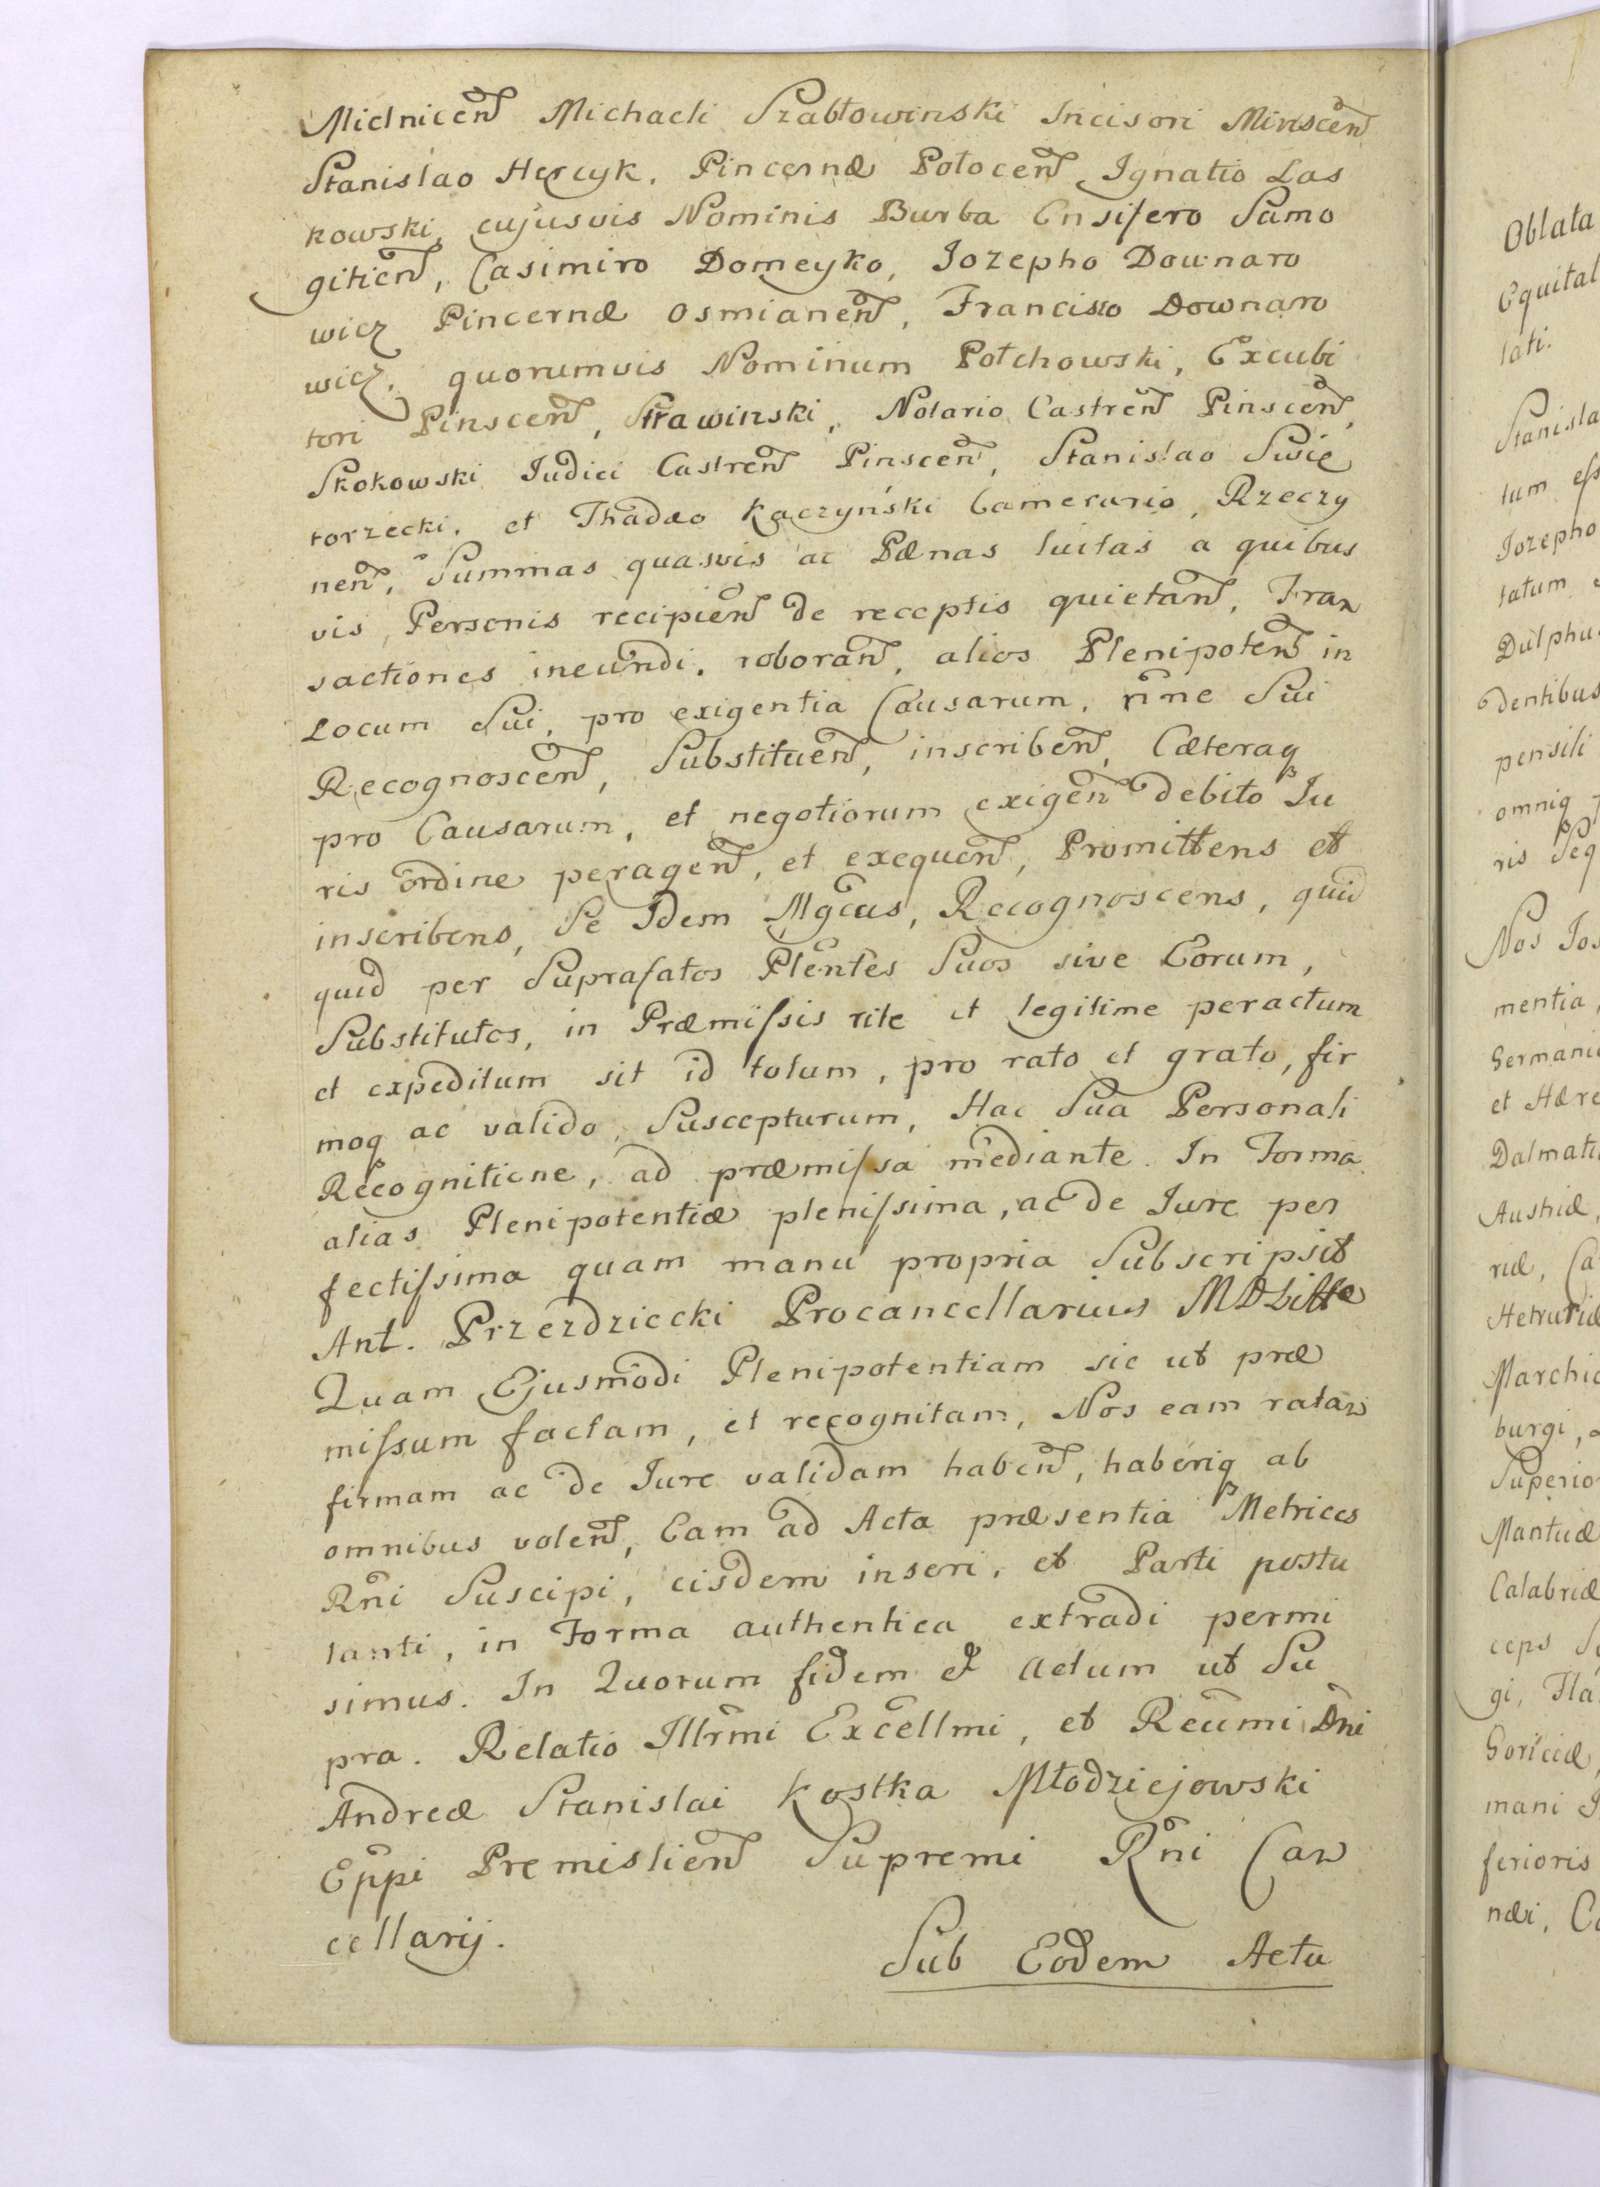 Mielnicen̄ Michaeli Szabłowinski Incisori Minscen̄
Stanislao Hercyk, Pincernæ Połocen̄ Ignatio Las
kowski, cujusvis Nominis Burba Ensifero Samo
gitien̄, Casimiro Domeyko, Jozepho Downaro
wicz Pincernæ Osmianen̄, Francisco Downaro
wicz, quorumvis Nominum Połchowski, Excubi
tori Pinscen̄, Strawinski, Notario Castren̄ Pinscen̄,
Skokowski Judici Castren̄ Pinscen̄, Stanislao Swie
torzecki, et Thadæo Kaczyński Camerario, Rzeczy
nen̄, Summas quasvis ac Pænas luitas a quibus
vis, Personis recipien̄ de receptis quietan̄, Tran
sactiones ineundi, roboran̄, alios Plenipoten̄ in
Locum Sui, pro exigentia Causarum, n̄ne Sui
Recognoscen̄, Substituen̄, inscriben̄, Cæteraq
pro Causarum, et negotiorum exigen̄ debito Ju
ris ordine peragen̄, et exequen̄, Promittens et
inscribens, Se Idem Mg̃cus, Recognoscens, quid
quid per Suprafatos Pleñtes Suos sive Eorum,
Substitutos, in Præmissis rite et legitime peractum
et expeditum sit id totum, pro rato et grato, fir
moq ac valido, Suscepturum, Hac Sua Personali
Recognitione, ad præmissa mediante. In Forma
alias Plenipotentiæ plenissima, ac de Jure per
fectissima quam manu propria Subscripsit
Ant. Przezdziecki Procancellarius MDLittæ
Quam Ejusmodi Plenipotentiam sic ut præ
missum factam, et recognitam, Nos eam ratam
firmam ac de Jure validam haben̄, haberiq ab
omnibus volen̄, Eam ad Acta præsentia Metrices
Rñi Suscipi, eisdem inseri, et Parti postu
lanti, in Forma authentica extradi permi
simus. In Quorum fidem et Actum ut Su
pra. Relatio Illr̃mi Excellm̃i, et Reũmi Dñi
Andreæ Stanislai Kostka Młodziejowski
Ep̃pi Premislien̄ Supremi Rñi Can
cellarij.
Sub Eodem Actu
Oblata
Equital
lati.
Stanisla
tum ess
Jozepho
tatum
Dulphus
dentibus
pensili
omniq
ris Seq
Nos Jos
mentia,
Germanic
et Hære
Dalmati
Austriæ,
riæ, Ca
Hetruriæ
Marchio
burgi,
Superio
Mantuæ
Calabriæ
ceps Su
gi, Fla
Goriciæ,
mani
ferioris
næi, Co